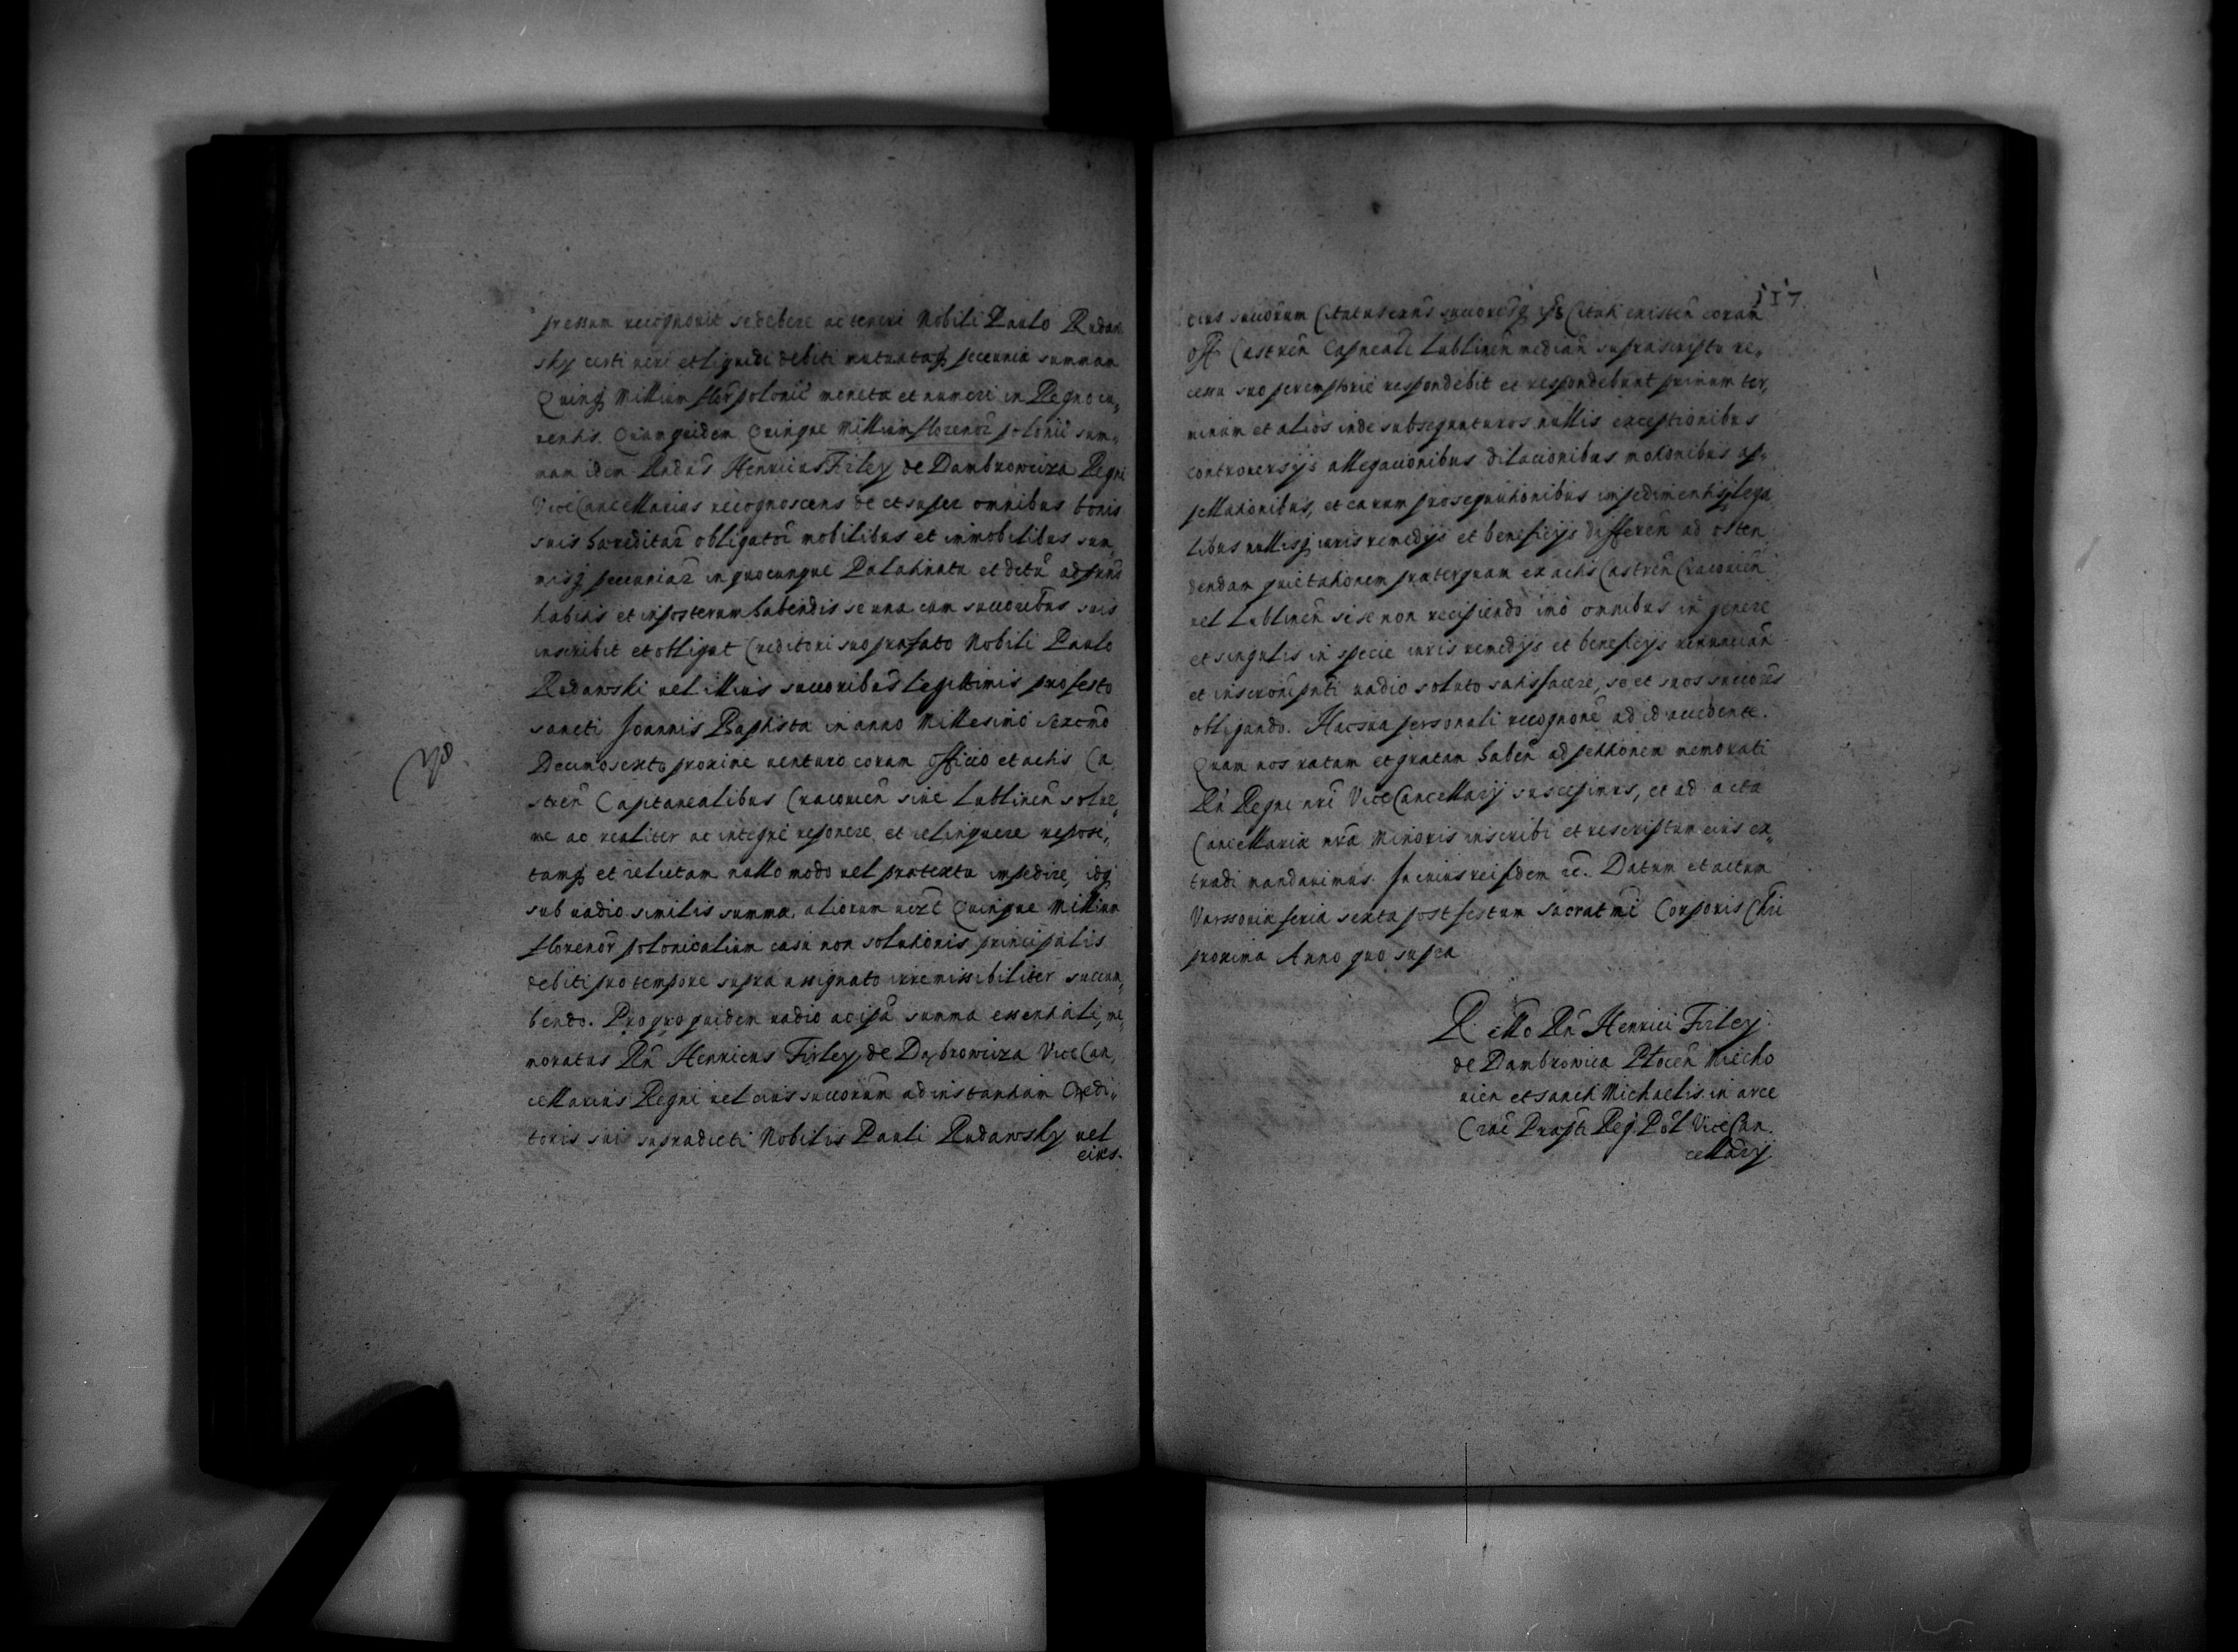 pressum recognovit se debere ac teneri Nobili Paulo Rudaw
sky certi veri et liquidi debiti mutuatæq pecuniæ summam
Quinq Millium flor polonic̃ monetæ et numeri in Regno cu„
rentis. Quam quidem Quinque Millium florenor̃ polonic̃ sum„
mam idem Rndus Henricus Firley de Dambrowicza Regni
ViceCancellarius recognoscens de et super omnibus bonis
suis hæreditar̃ obligator̃ mobilibus et immobilibus sum„
misq pecuniar̃ in quocunque Palatinatu et distr̃ ad præns
habitis et inposterum habendis se una cum succoribus suis
inscribit et obligat Creditori suo præfato Nobili Paulo
Rudawski vel illius succoribus legittimis pro festo
sancti Joannis Baptistæ in anno Millesimo sexcmo
Decimosexto proxime venturo coram officio et actis Ca
stren̄ Capitanealibus Cracovien̄ sive Lublinen̄ solve„
re ac realiter ac integre reponere et relinquere reposi„
tamq et relictam nullo modo vel prætextu impedire, idq
sub vadio similis summæ aliorum vizt Quinque Millium
florenor̃ polonicalium casu non solutionis principalis
debiti pro tempore supra assignato irremissibiliter succum„
bendo. Pro quo quidem vadio ac ipsa summa essentiali, me„
moratus Rn̄ Henricus Firley de Dąbrowicza ViceCan„
cellarius Regni vel eius succorum ad instantiam Credi„
toris sui supradicti Nobilis Pauli Rudawsky vel
eius.
117.
eius succorum Citatus
coram
Off Castren̄ Capneali Lublinen̄ median̄ suprascripto re„
cessu suo peremptorie respondebit et respondebunt primum ter„
minum et alios inde subsequuturos nullis exceptionibus
controversijs allegationibus dilationibus motionibus ap„
pellationibus, et earum prosequutionibus impedimentisq lega
libus nullisq iuris remedijs et beneficijs differen̄ ad osten
dendam quietationem præterquam ex actis Castren̄ Cracovien̄
vel Lublinen̄ sise non recipiendo imo omnibus in genere
et singulis in specie iuris remedijs et beneficijs renuncian̄
et inscroni pnti vadio soluto satisfacere, se et suos succores
obligando. Hac sua personali recognone ad id accedente.
Quam nos ratam et gratam haben̄ ad petitionem memorati
Rn̄ Regni nri ViceCancellarij suscepimus, et ad acta
Cancellariæ nræ Minoris inscribi et rescriptum eius ex„
tradi mandavimus. In cuius rei fidem &c. Datum et actum
Varssoviæ feria sexta post festum sacratmi Corporis Chri
proxima Anno quo supra
R. etto Rn̄ Henrici Firley
de Dambrowica Plocen̄ Miecho
vien et sancti Michaelis in arce
Crac̄ Præpti Reg. Pol ViceCan.
cellarij